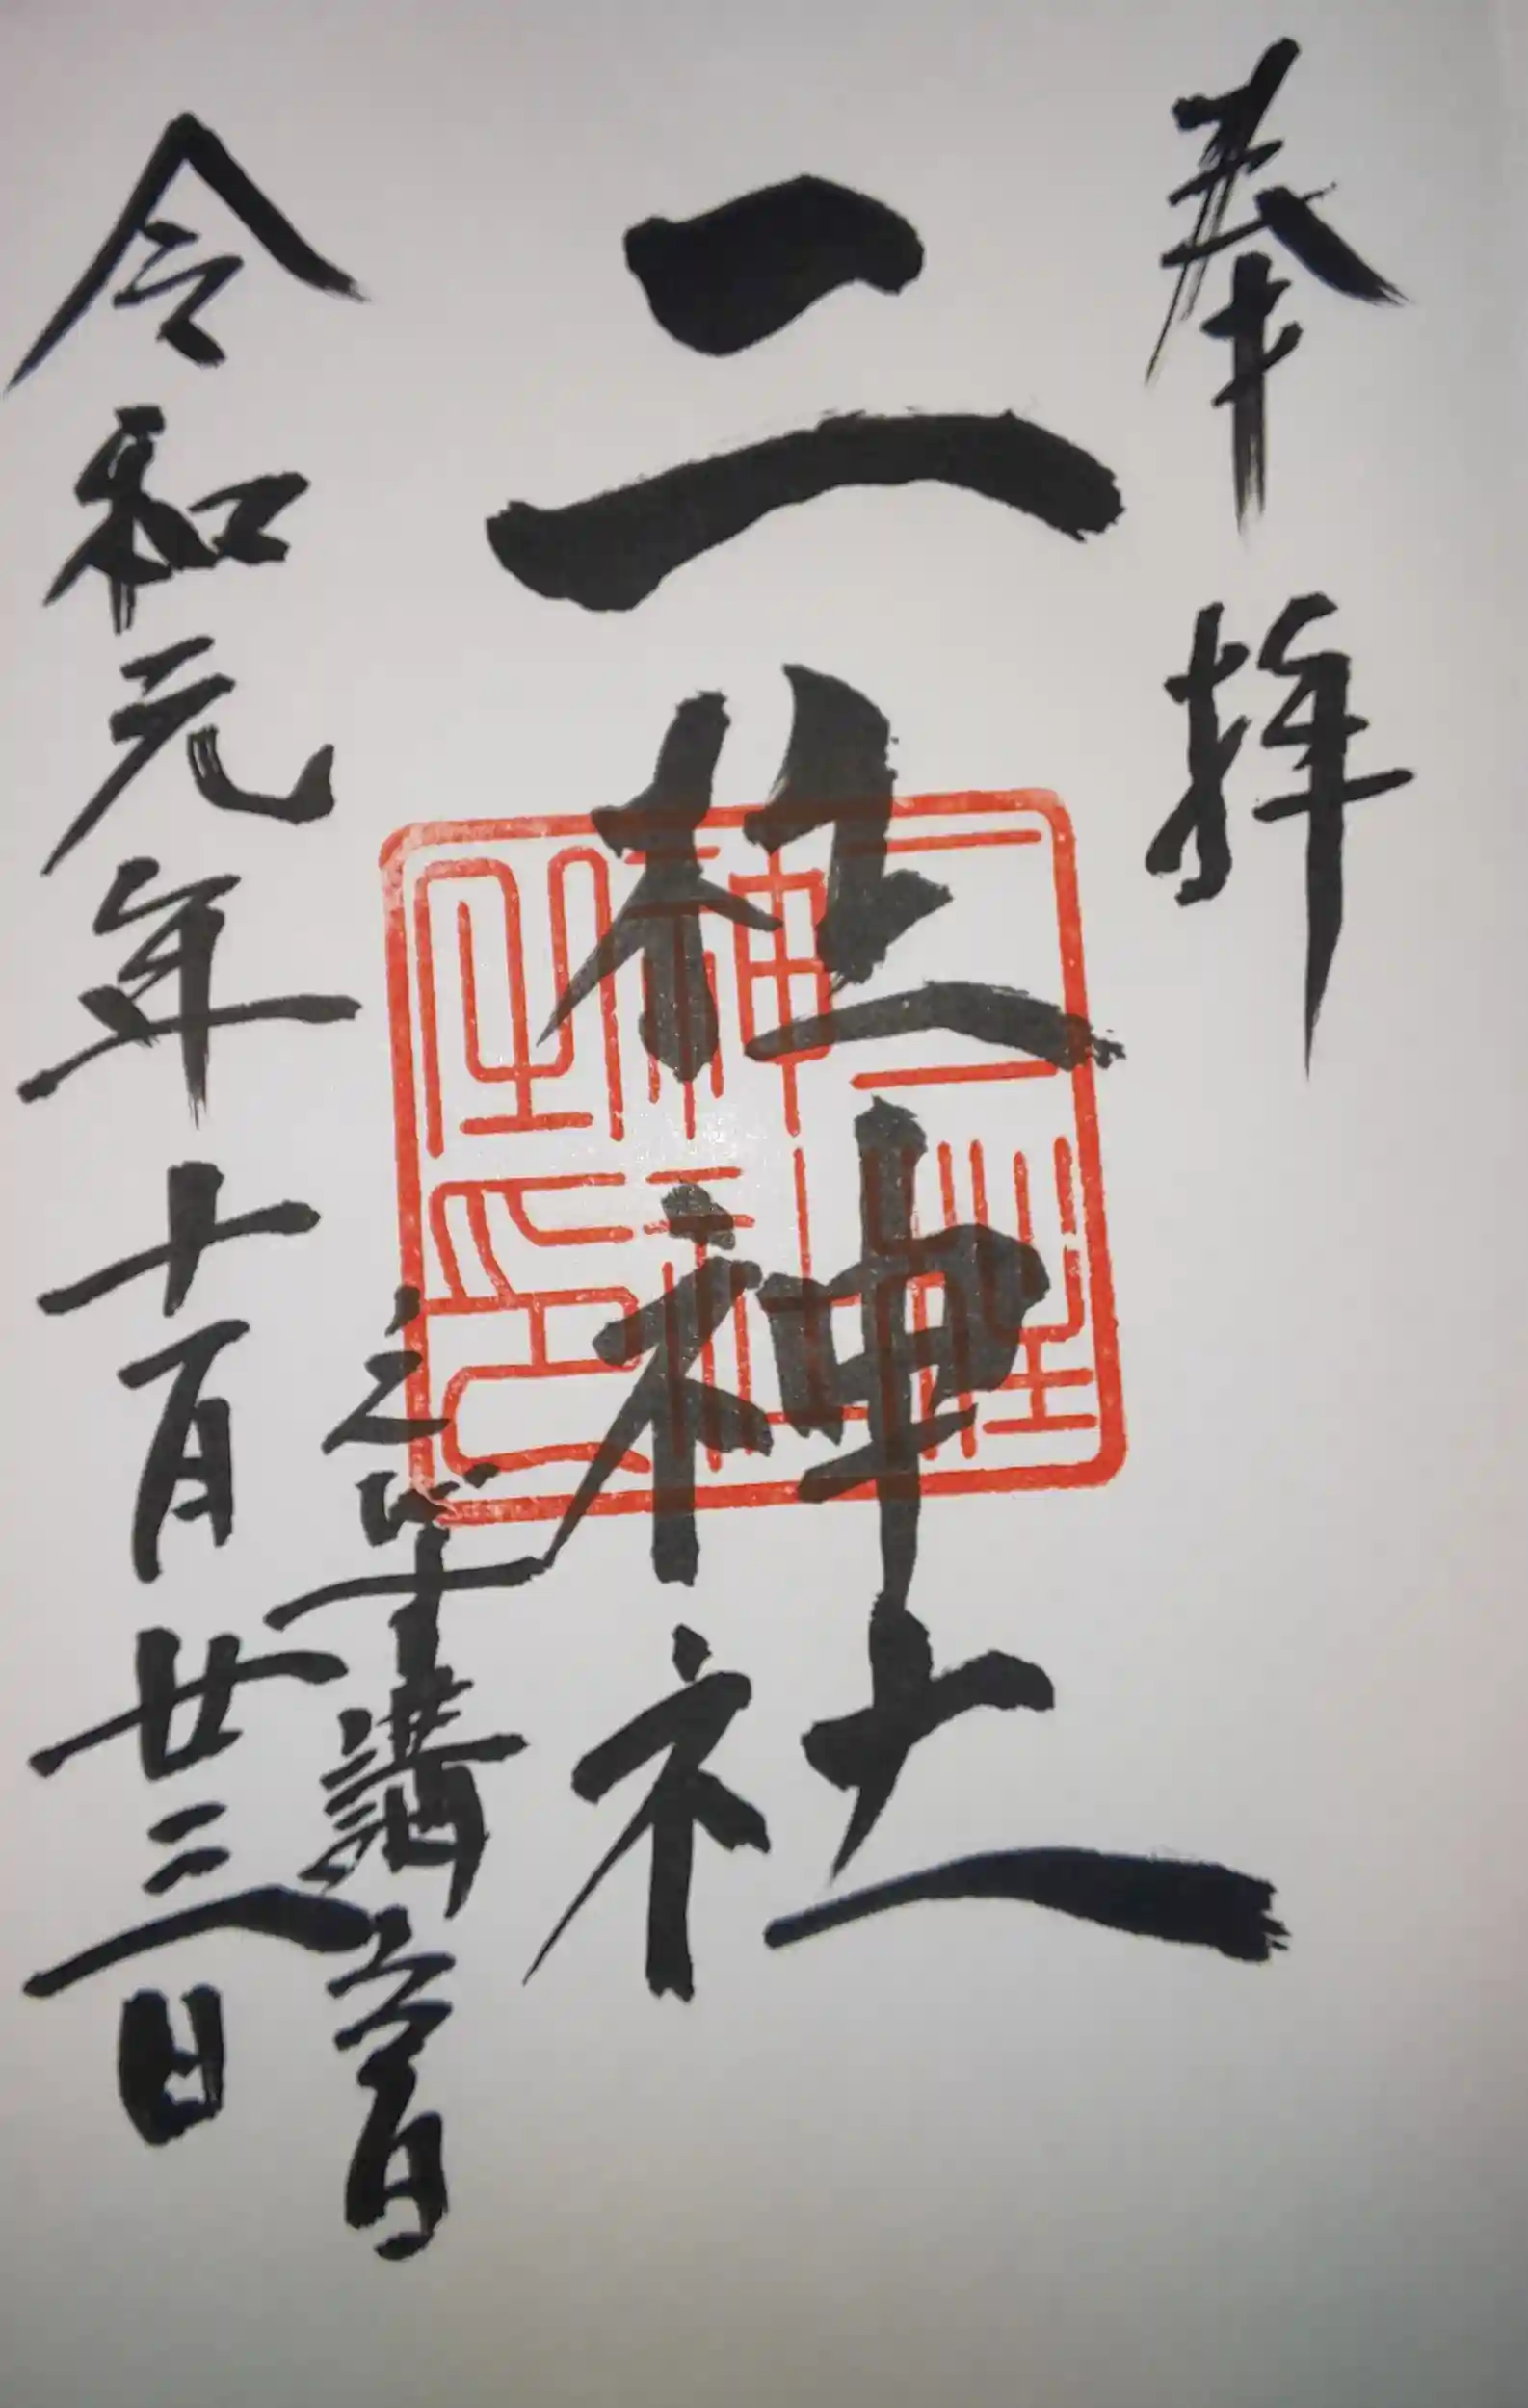 奉拝
二柱神社
二柱神社之印
令和元年十月廿三日